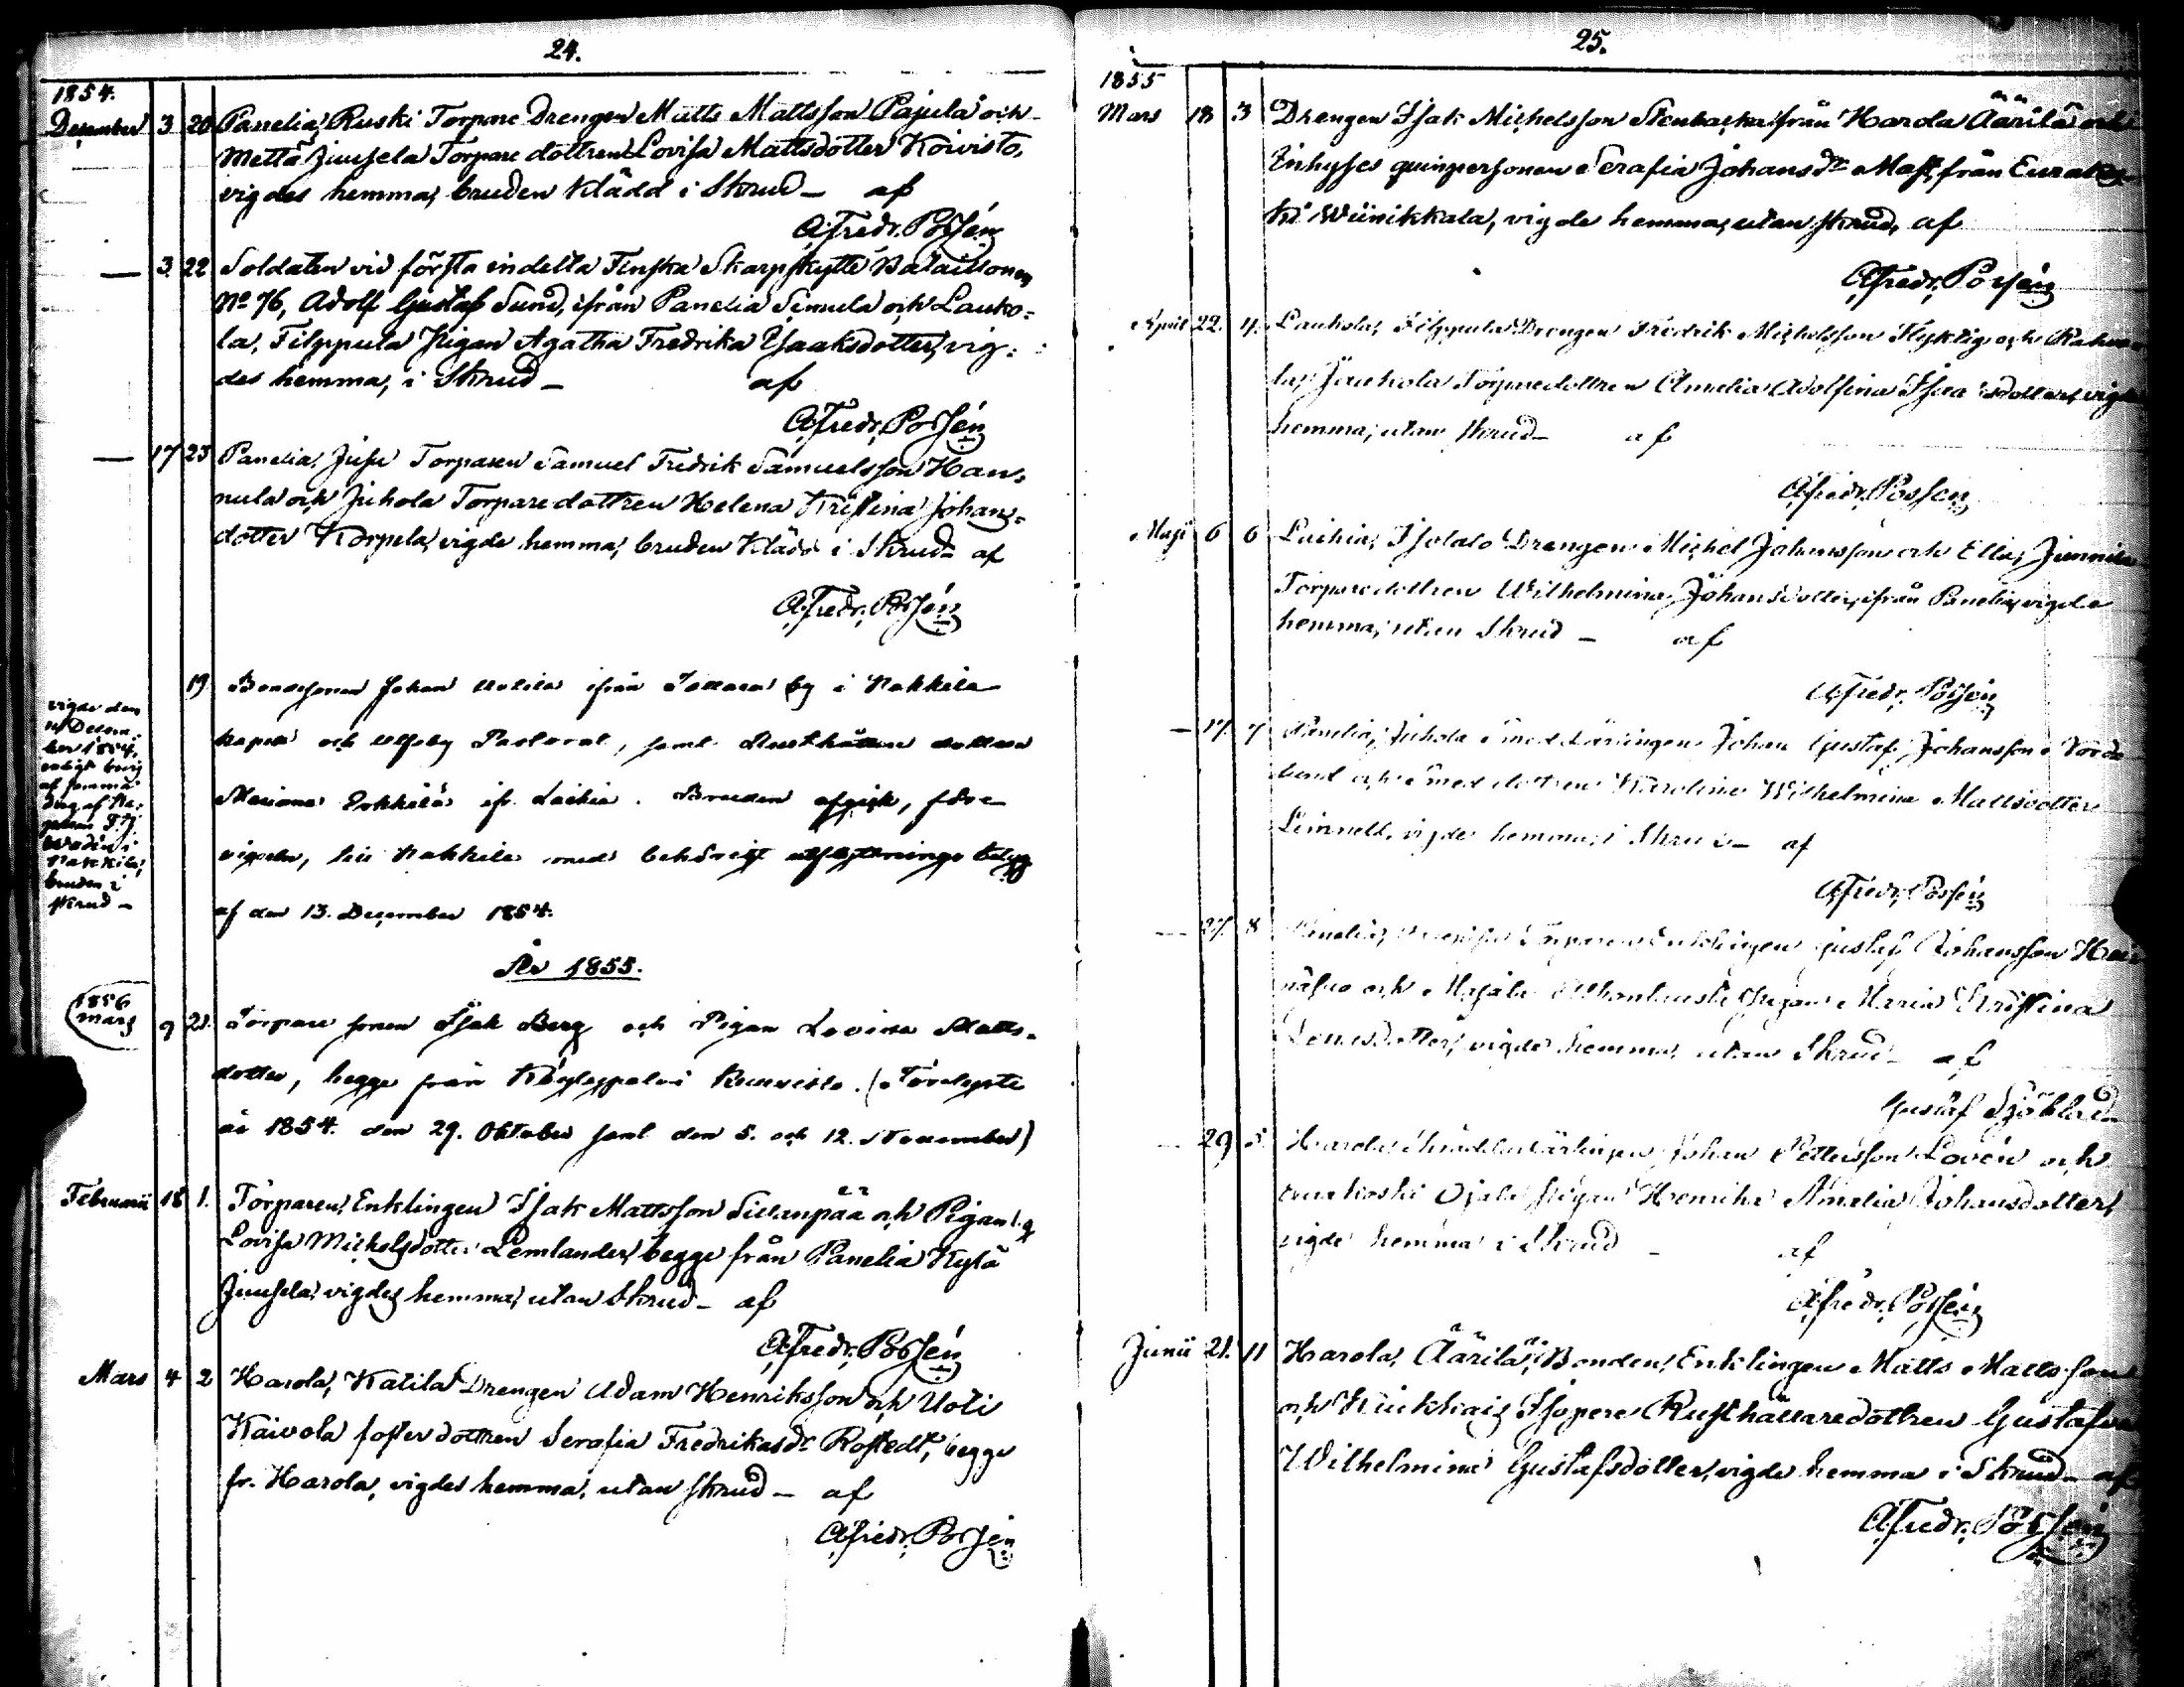 24.
1854.
December 3 20 Panelia, Ruski Torpare Drengen Matts Mattsson Pajula och
Mettä Juusela Torpare dottren Lovisa Mattsdotter Koivisto,
vigdes hemma, bruden klädd i Skrud – af
A. Fredr. Possén
— 3. 22 Soldaten vid första indelta Finska Skarpskytte Bataillonen
No 76, Adolf Gustaf Sund, ifrån Panelia Simula och Lauko=
la, Filppula Pigan Agatha Fredrika Isaaksdotter, vig=
des hemma, i Skrud – af
A. Fredr. Possén
— 17 23 Panelia, Juse Torparen Samuel Fredrik Samuelsson Han=
nula och Juhola Torpare dottren Helena Kristina Johans=
dotter Korpela, vigde hemma, bruden klädd i Skrud – af
A. Fredr. Possén
vigde den
Decem=
ber 1854.
enligt bevis
af samma
dag af
i
Nakkila,
bruden i
skrud –
19 Bondesonen Johan ifrån by i Nakkila
kapell och Ulfsby Pastorat, samt Rusthållare dottren
Mariana Erkkilä ifr. Laihia. Bruden afgick, före
vigseln, till Nakkila med behörigt utflyttnings betyg
af den 13. December 1854.
År 1855.
1856
Mars 9 21. Torpare sonen Isak Berg och Pigan Lovisa Matts=
dotter, begge från Köyleypolvi Kuuvisto. (Förelyste
år 1854. den 29. Oktober samt den 5. och 12. November)
Februarii 18 1. Torparen, Enklingen Isak Mattsson Sillanpää och Pigan
Lovisa Michelsdotter Lemlander, begge från Panelia Kylä
Juusela, vigdes hemma, utan Skrud – af
A. Fredr. Possén
Mars 4 2 Harola, Katila Drengen Adam Henriksson och Uoti
Kaivola foster dottren Serafia Fredrikasdr Rostedt, begge
fr. Harola, vigdes hemma, utan skrud – af
A. Fredr. Possén
25.
1855
Mars 18 3 Drengen Isak Michelsson Stenbacka från Harola Äärilä och
Inhyses qvinspersonen Serafia Johansdr Mast, från Eurakos=
ki Wiinikkala, vigde hemma, utan skrud, af
A. Fredr. Possén
April 22. 4. Laukola, Filppula Drengen Fredrik Michelsson Flyktig och
Jaukola Torparedottren Amelia Adolfina vigde
hemma, utan skrud – af
A. Fredr. Possén
Maji 6 6 Laihia, Isotalo Drengen Michel Johansson och Ella,
Torparedottren Wilhelmina Johansdotter, ifrån Panelia, vigde
hemma, utan Skrud – af
A. Fredr. Possén
— 17. 7 Panelia, Juhola Smed Lärlingen Johan Gustaf Johansson
och Smed dottren Karolina Wilhelmina Mattsdotter
vigde hemma, i Skrud – af
A. Fredr. Possén
— 27. 8 Panelia, Torparen Enklingen Gustaf Johansson
och Pigan Maria Kristina
vigde hemma, utan Skrud – af
Gustaf Sjöblad
— 29 5 Harola Skräddarlärlingen Johan Pettersson Lovén och
Eurakoski Ojala pigan Henrika Amelia Johansdotter,
vigde hemma i Skrud – af
A. Fredr. Possén
Junii 21. 11 Harola, Äärilä, Bonden, Enklingen Matts Mattsson
och Kiukkais, Isopere Rusthållaredottren Gustafva
Wilhelmina Gustafsdotter, vigde hemma i Skrud – af
A. Fredr. Possén